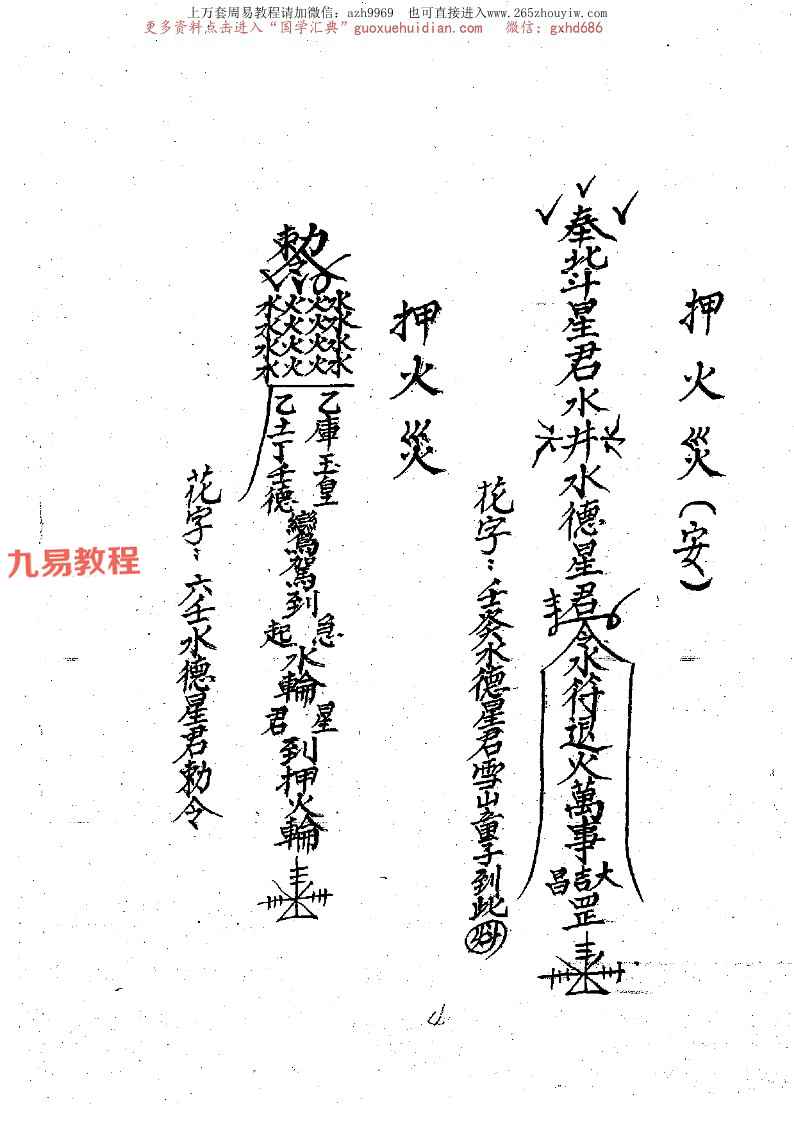 上万套周易教程请加微信：azh9969 也可直接进入www.265zhouyiw.com
更多资料点击进入“国学汇典”guoxuehuidian.com 微信：gxhd686
押火災（安）
奉北斗星君水井水德星君令水符退火萬事大吉昌罡
花字：壬癸水德星君雪山童子到此
押火災
勅令
水火火水
水火火水
水火火水
水火火水
乙庫玉皇
乙土丁壬德
鸞駕到
急起
水輪
星君
到押火輪
花字：六壬水德星君勅令
九易教程
4